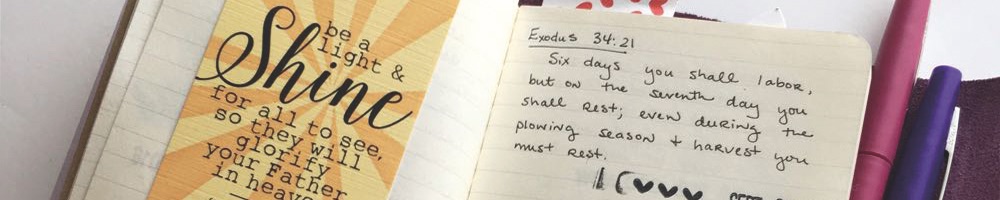 be a
light &
Shine
for all to see,
so they will
glorify
your Father
in heave
Exodus 34:21
Six days you shall labor,
but on the seventh day you
shall rest; even during the
plowing season + harvest you
must rest.